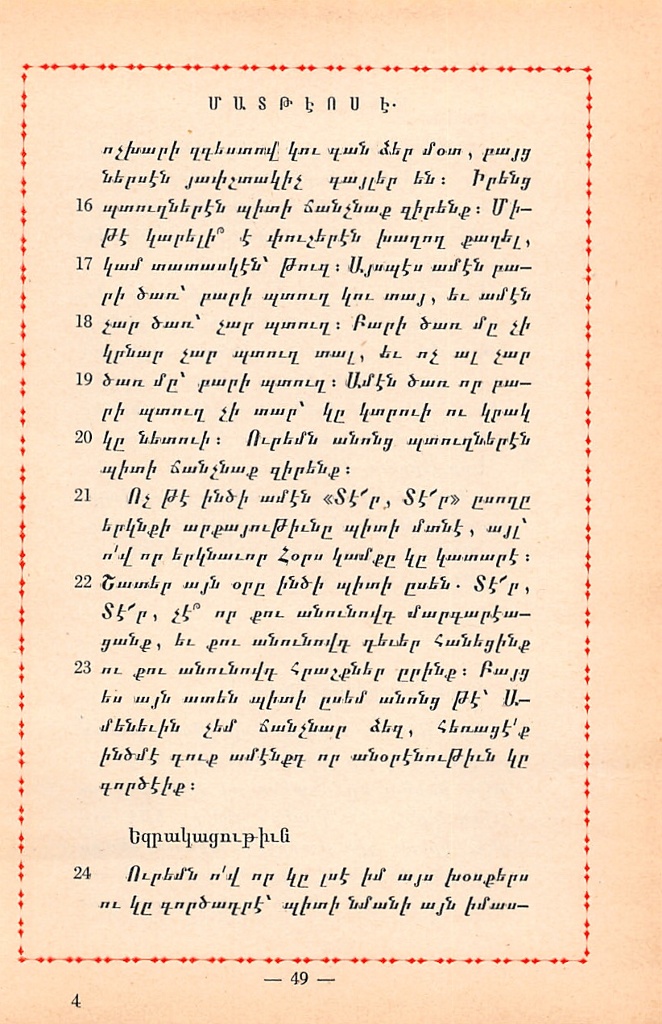 ՄԱՏԹԷՈՍ Է.
ոչխարի զգեստով կու գան ձեր մօտ, բայց
ներսէն յափշտակիչ գայլեր են։ Իրենց
16 պտուղներէն պիտի ճանչնաք զիրենք։ Մի–
թէ կարելի՞ է փուչերէն խաղող քաղել,
17 կամ տատասկէն՝ թուզ։ Այսպէս ամէն բա–
րի ծառ՝ բարի պտուղ կու տայ, եւ ամէն
18 չար ծառ՝ չար պտուղ։ Բարի ծառ մը չի
կրնար չար պտուղ տալ, եւ ոչ ալ չար
19 ծառ մը՝ բարի պտուղ։ Ամէն ծառ որ բա–
րի պտուղ չի տար՝ կը կտրուի ու կրակ
20 կը նետուի։ Ուրեմն անոնց պտուղներէն
պիտի ճանչնաք զիրենք։
21 Ոչ թէ ինծի ամէն «Տէ՜ր, Տէ՜ր» ըսողը
երկնքի արքայութիւնը պիտի մտնէ, այլ՝
ո՛վ որ երկնաւոր Հօրս կամքը կը կատարէ։
22 Շատեր այն օրը ինծի պիտի ըսեն. Տէ՜ր,
Տէ՜ր, չէ՞ որ քու անունովդ մարգարէա–
ցանք, եւ քու անունովդ դեւեր հանեցինք
23 ու քու անունովդ հրաշքներ ըրինք։ Բայց
ես այն ատեն պիտի ըսեմ անոնց թէ՝ Ա–
մենեւին չեմ ճանչնար ձեզ, հեռացէ՛ք
ինծմէ դուք ամէնքդ որ անօրէնութիւն կը
գործէիք։
Եզրակացութիւն
24 Ուրեմն ո՛վ որ կը լսէ իմ այս խօսքերս
ու կը գործադրէ՝ պիտի նմանի այն իմաս–
— 49 —
4